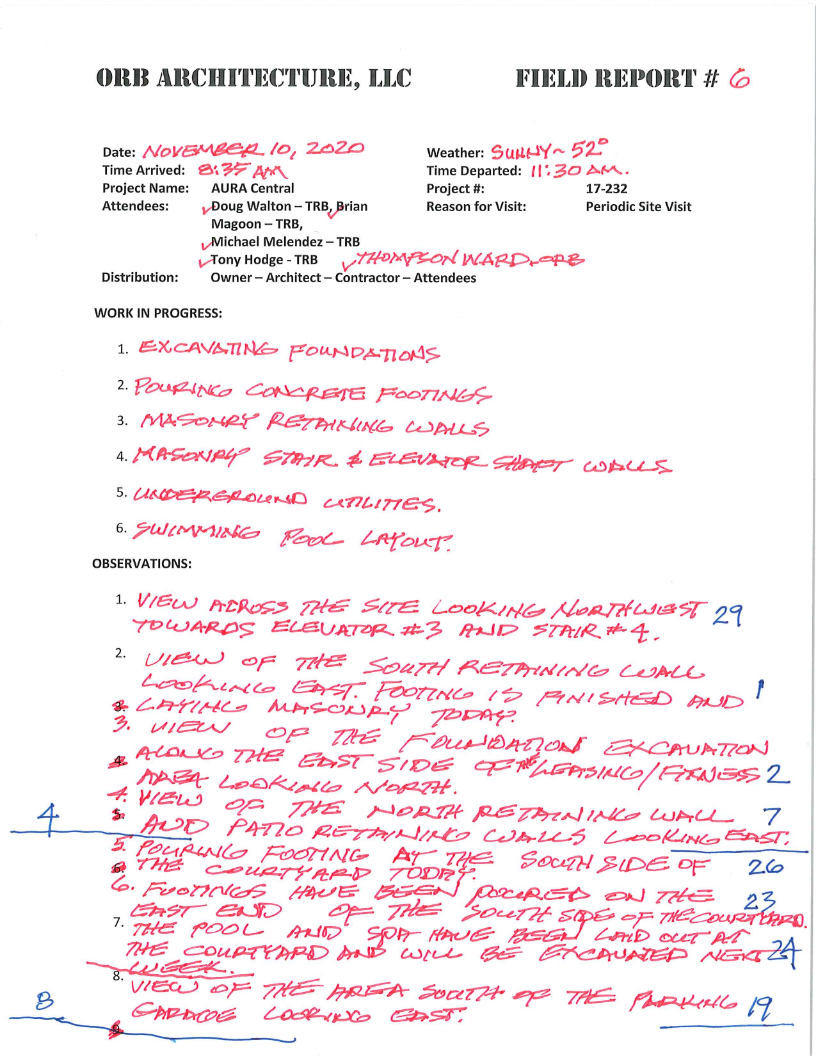 ORB ARCHITECTURE, LLC FIELD REPORT # 6
Date: NOVEMBER 10, 2020 Weather: SUNNY ~ 52°
Time Arrived: 8:35 AM Time Departed: 11:30 AM.
Project Name: AURA Central Project #: 17-232
Attendees: Doug Walton – TRB, Brian Reason for Visit: Periodic Site Visit
Magoon – TRB,
Michael Melendez – TRB
Tony Hodge - TRB THOMPSON WARD-ORB
Distribution: Owner – Architect – Contractor – Attendees
WORK IN PROGRESS:
1. EXCAVATING FOUNDATIONS
2. POURING CONCRETE FOOTINGS
3. MASONRY RETAINING WALLS
4. MASONRY STAIR & ELEVATOR SHAFT WALLS
5. UNDERGROUND UTILITIES.
6. SWIMMING POOL LAYOUT.
OBSERVATIONS:
1. VIEW ACROSS THE SITE LOOKING NORTHWEST 29
TOWARDS ELEVATOR #3 AND STAIR #4.
2. VIEW OF THE SOUTH RETAINING WALL
LOOKING EAST. FOOTING IS FINISHED AND 1
3. LAYING MASONRY TODAY.
3. VIEW OF THE FOUNDATION EXCAVATION
4. ALONG THE EAST SIDE OF THE LEASING/FITNESS 2
AREA LOOKING NORTH.
4. VIEW OF THE NORTH RETAINING WALL 7
4 5. AND PATIO RETAINING WALLS LOOKING EAST.
5. POURING FOOTING AT THE SOUTH SIDE OF 26
6. THE COURTYARD TODAY.
6. FOOTINGS HAVE BEEN POURED ON THE 23
EAST END OF THE SOUTH SIDE OF THE COURTYARD.
7. THE POOL AND SPA HAVE BEEN LAID OUT AT
THE COURTYARD AND WILL BE EXCAVATED NEXT 24
WEEK.
8. VIEW OF THE AREA SOUTH OF THE PARKING 19
8 GARAGE LOOKING EAST.
9.